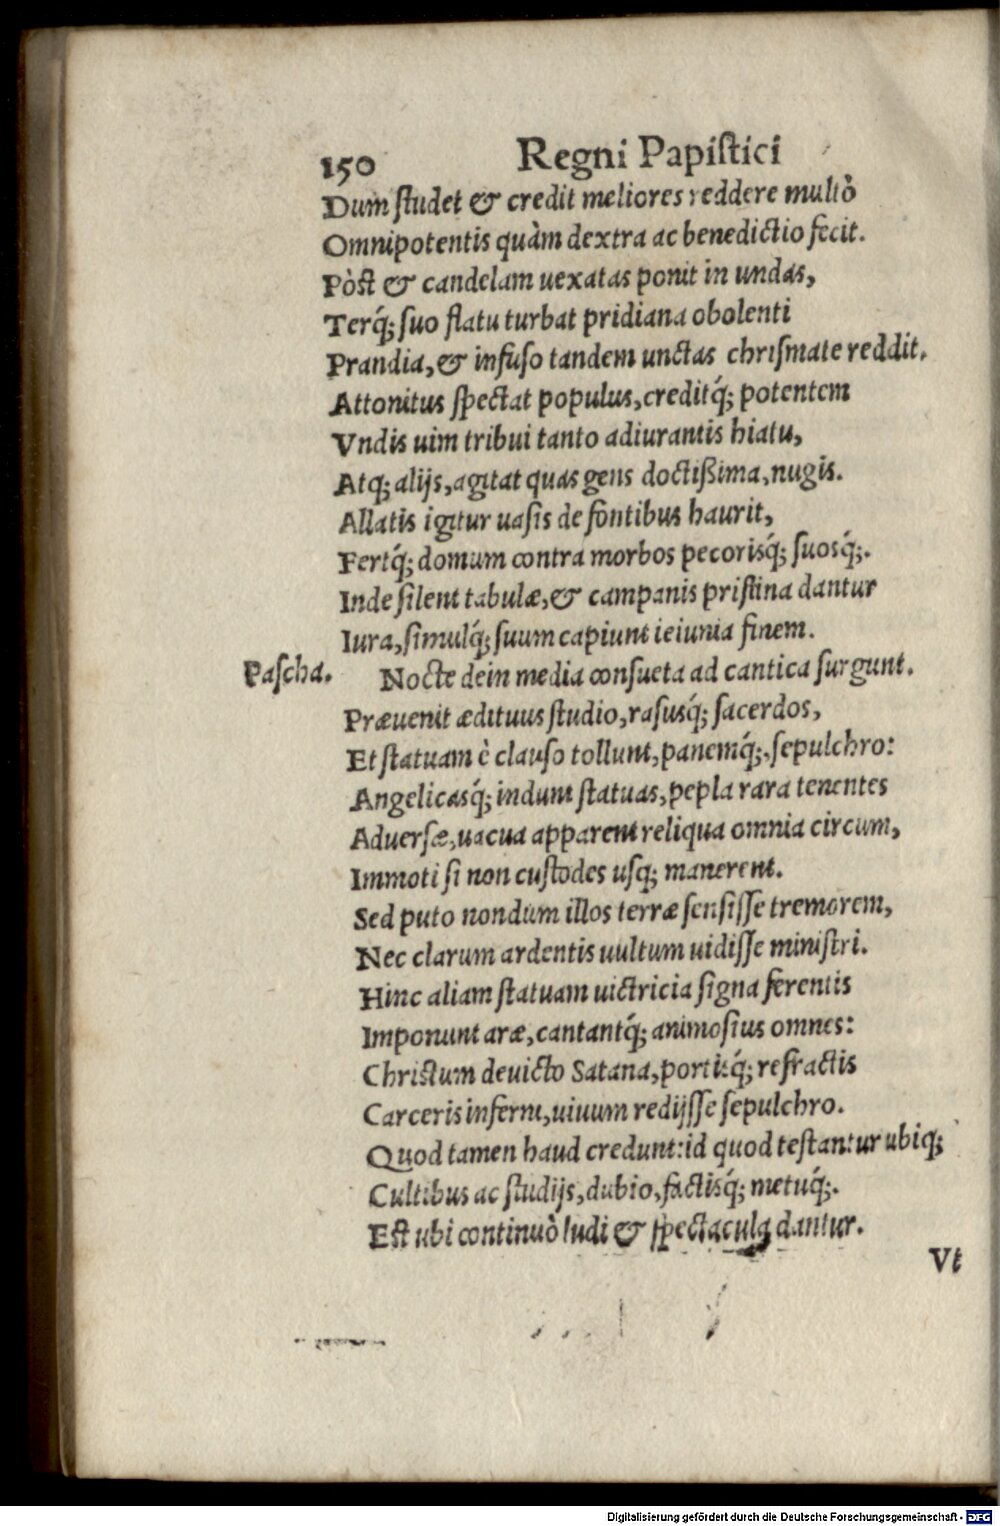 150 Regni Papistici
Dum studet & credit meliores reddere multò
Omnipotentis quàm dextra ac benedictio fecit.
Pòst & candelam uexatas ponit in undas,
Terq́; suo flatu turbat pridiana obolenti
Prandia, & infuso tandem unctas chrismate reddit.
Attonitus spectat populus, creditq́; potentem
Vndis uim tribui tanto adiurantis hiatu,
Atq; alijs, agitat quas gens doctißima, nugis.
Allatis igitur uasis de fontibus haurit,
Fertq́; domum contra morbos pecorisq́; suosq́;.
Inde silent tabulæ, & campanis pristina dantur
Iura, simulq́; suum capiunt ieiunia finem.
Pascha. Nocte dein media consueta ad cantica surgunt.
Præuenit ædituus studio, rasusq́; sacerdos,
Et statuam è clauso tollunt, panemq́;, sepulchro:
Angelicasq́; indunt statuas, pepla rara tenentes
Aduersæ, uacua apparent reliqua omnia circum,
Immoti si non custodes usq; manerent.
Sed puto nondum illos terræ sensisse tremorem,
Nec clarum ardentis uultum uidisse ministri.
Hinc aliam statuam uictricia signa ferentis
Imponunt aræ, cantantq́; animosius omnes:
Christum deuicto Satana, portisq́; refractis
Carceris inferni, uiuum redijsse sepulchro.
Quod tamen haud credunt: id quod testantur ubiq;
Cultibus ac studijs, dubio, factisq́; metuq́;.
Est ubi continuò ludi & spectacula dantur.
Vt
Digitalisierung gefördert durch die Deutsche Forschungsgemeinschaft - DFG